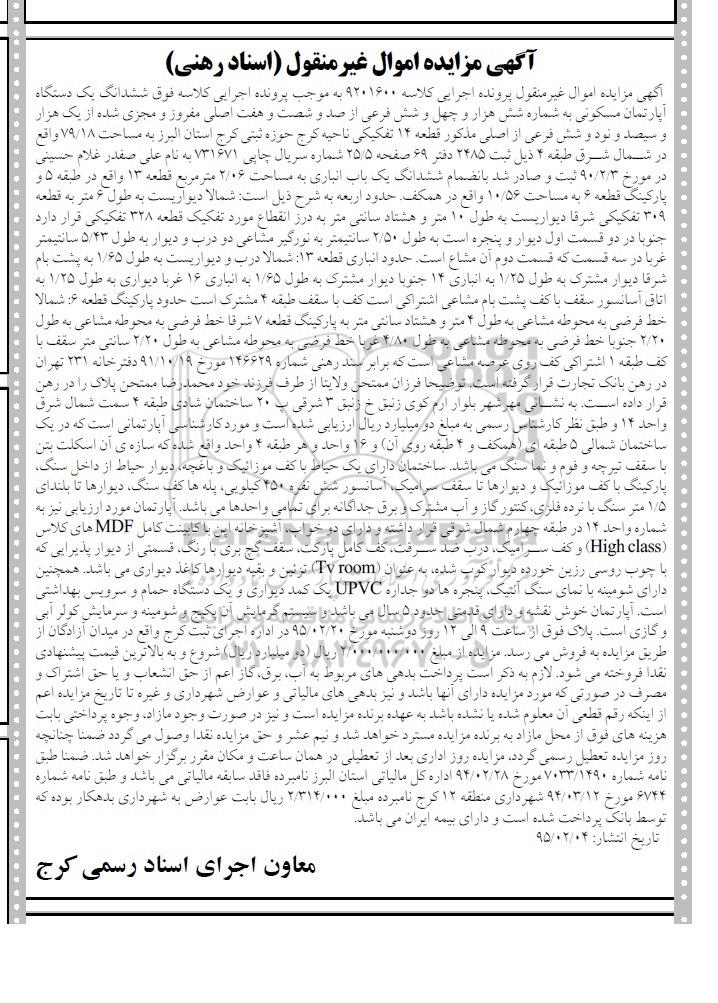 آگهی مزایده اموال غیرمنقول (اسناد رهنی)
آگهی مزایده اموال غیرمنقول پرونده اجرایی کلاسه ۹۲۰۱۶۰۰ به موجب پرونده اجرایی کلاسه فوق ششدانگ یک دستگاه
آپارتمان مسکونی به شماره شش هزار و چهل و شش فرعی از صد و شصت و هفت اصلی مفروز و مجزی شده از یک هزار
و سیصد و نود و شش فرعی از اصلی مذکور قطعه ۱۴ تفکیکی ناحیه کرج حوزه ثبتی کرج استان البرز به مساحت ۷۹/۱۸ واقع
در شــمال شــرق طبقه ۴ ذیل ثبت ۲۴۸۵ دفتر ۶۹ صفحه ۲۵/۵ شماره سریال چاپی ۷۳۱۶۷۱ به نام علی صفدر غلام حسینی
در مورخ ۹۰/۲/۳ ثبت و صادر شد بانضمام ششدانگ یک باب انباری به مساحت ۲/۰۶ مترمربع قطعه ۱۳ واقع در طبقه ۵ و
پارکینگ قطعه ۶ به مساحت ۱۰/۵۶ واقع در همکف. حدود اربعه به شرح ذیل است: شمالا دیواریست به طول ۶ متر به قطعه
۳۰۹ تفکیکی شرقا دیواریست به طول ۱۰ متر و هشتاد سانتی متر به درز انقطاع مورد تفکیک قطعه ۳۲۸ تفکیکی قرار دارد
جنوبا در دو قسمت اول دیوار و پنجره است به طول ۲/۵۰ سانتیمتر به نورگیر مشاعی دو درب و دیوار به طول ۵/۴۳ سانتیمتر
غربا در سه قسمت که قسمت دوم آن مشاع است. حدود انباری قطعه ۱۳: شمالا درب و دیواریست به طول ۱/۶۵ به پشت بام
شرقا دیوار مشترک به طول ۱/۲۵ به انباری ۱۴ جنوبا دیوار مشترک به طول ۱/۶۵ به انباری ۱۶ غربا دیواری به طول ۱/۲۵ به
اتاق آسانسور سقف با کف پشت بام مشاعی اشتراکی است کف با سقف طبقه ۴ مشترک است حدود پارکینگ قطعه ۶: شمالا
خط فرضی به محوطه مشاعی به طول ۴ متر و هشتاد سانتی متر به پارکینگ قطعه ۷ شرقا خط فرضی به محوطه مشاعی به طول
۲/۲۰ جنوبا خط فرضی به محوطه مشاعی به طول ۴/۸۰ غربا خط فرضی به محوطه مشاعی به طول ۲/۲۰ سانتی متر سقف با
کف طبقه ۱ اشتراکی کف روی عرصه مشاعی است که برابر سند رهنی شماره ۱۴۶۶۲۹ مورخ ۹۱/۱۰/۱۹ دفترخانه ۲۳۱ تهران
در رهن بانک تجارت قرار گرفته است. توضیحا فرزان ممتحن ولایتا از طرف فرزند خود محمدرضا ممتحن پلاک را در رهن
قرار داده اســت. به نشــانی مهرشهر بلوار ارم کوی زنبق خ زنبق ۳ شرقی پ ۲۰ ساختمان شادی طبقه ۴ سمت شمال شرق
واحد ۱۴ و طبق نظر کارشناس رسمی به مبلغ دو میلیارد ریال ارزیابی شده است و مورد کارشناسی آپارتمانی است که در یک
ساختمان شمالی ۵ طبقه ای (همکف و ۴ طبقه روی آن) و ۱۶ واحد و هر طبقه ۴ واحد واقع شده که سازه ی آن اسکلت بتن
با سقف تیرچه و فوم و نما سنگ می باشد. ساختمان دارای یک حیاط با کف موزائیک و باغچه، دیوار حیاط از داخل سنگ،
پارکینگ با کف موزائیک و دیوارها تا سقف سرامیک، آسانسور شش نفره ۴۵۰ کیلویی، پله ها کف سنگ، دیوارها تا بلندای
۱/۵ متر سنگ با نرده فلزی، کنتور گاز و آب مشترک و برق جداگانه برای تمامی واحدها می باشد. آپارتمان مورد ارزیابی نیز به
شماره واحد ۱۴ در طبقه چهارم شمال شرقی قرار داشته و دارای دو خواب، آشپزخانه اپن با کابینت کامل MDF های کلاس
(High class) و کف ســرامیک، درب ضد ســرقت، کف کامل پارکت، سقف گچ بری با رنگ، قسمتی از دیوار پذیرایی که
با چوب روسی رزین خورده دیوار کوب شده، به عنوان (Tv room) تزئین و بقیه دیوارها کاغذ دیواری می باشد. همچنین
دارای شومینه با نمای سنگ آنتیک، پنجره ها دو جداره UPVC یک کمد دیواری و یک دستگاه حمام و سرویس بهداشتی
است. آپارتمان خوش نقشه و دارای قدمتی حدود ۵ سال می باشد و سیستم گرمایش آن پکیج و شومینه و سرمایش کولر آبی
و گازی است. پلاک فوق از ساعت ۹ الی ۱۲ روز دوشنبه مورخ ۹۵/۰۲/۲۰ در اداره اجرای ثبت کرج واقع در میدان آزادگان از
طریق مزایده به فروش می رسد. مزایده از مبلغ ۲/۰۰۰/۰۰۰/۰۰۰ ریال (دو میلیارد ریال) شروع و به بالاترین قیمت پیشنهادی
نقدا فروخته می شود. لازم به ذکر است پرداخت بدهی های مربوط به آب، برق، گاز اعم از حق انشعاب و یا حق اشتراک و
مصرف در صورتی که مورد مزایده دارای آنها باشد و نیز بدهی های مالیاتی و عوارض شهرداری و غیره تا تاریخ مزایده اعم
از اینکه رقم قطعی آن معلوم شده یا نشده باشد به عهده برنده مزایده است و نیز در صورت وجود مازاد، وجوه پرداختی بابت
هزینه های فوق از محل مازاد به برنده مزایده مسترد خواهد شد و نیم عشر و حق مزایده نقدا وصول می گردد ضمنا چنانچه
روز مزایده تعطیل رسمی گردد، مزایده روز اداری بعد از تعطیلی در همان ساعت و مکان مقرر برگزار خواهد شد. ضمنا طبق
نامه شماره ۷۰۳۳/۱۴۹۰ مورخ ۹۴/۰۲/۲۸ اداره کل مالیاتی استان البرز نامبرده فاقد سابقه مالیاتی می باشد و طبق نامه شماره
۶۷۴۴ مورخ ۹۴/۰۳/۱۲ شهرداری منطقه ۱۲ کرج نامبرده مبلغ ۲/۳۱۴/۰۰۰ ریال بابت عوارض به شهرداری بدهکار بوده که
توسط بانک پرداخت شده است و دارای بیمه ایران می باشد.
تاریخ انتشار: ۹۵/۰۲/۰۴
معاون اجرای اسناد رسمی کرج